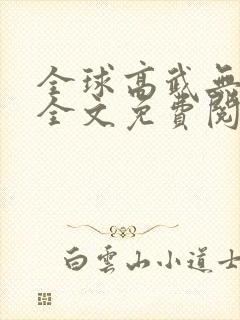 全球高武無
全文免費閱
白雲山小道士